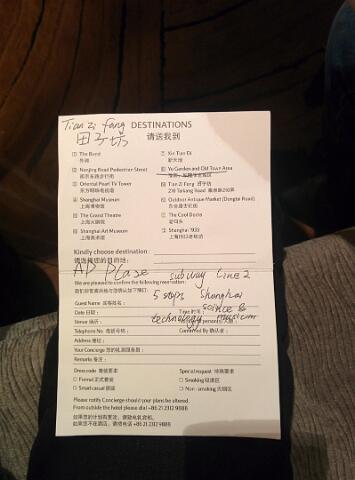 Tian zi fang DESTINATIONS
田子坊 请送我到
The Bund
外滩
Xin Tian Di
新天地
Nanjing Road Pedestrian Street
南京东路步行街
Yu Garden and Old Town Area
Oriental Pearl TV Tower
东方明珠电视塔
Tian Zi Fang 田子坊
210 Taikang Road 泰康路210弄
Shanghai Museum
上海博物馆
Outdoor Antique Market (Dongtai Road)
The Grand Theatre
上海大剧院
The Cool Docks
老码头
Shanghai Art Museum
上海美术馆
Shanghai 1933
上海1933老场坊
Kindly choose destination:
请选择您的目的地:
AP Plase subway line 2
We are pleased to confirm the following reservation:
5 stops Shanghai
Guest Name 宾客姓名: science &
Date 日期: Time 时间:
technology museum
Venue 场所:
Telephone No. 电话号码: Confirmed By 确认者:
Address 地址:
Your Concierge 您的礼宾服务员:
Remarks 备注:
Dress code 着装要求 Special request 特殊要求
Formal 正式着装 Smoking 吸烟区
Smart casual 便装 Non-smoking 无烟区
Please notify Concierge should your plans be altered.
From outside the hotel please dial +86 21 2312 9888
如果您的计划有更改,请致电礼宾部,
如果您不在酒店,请拨电话 +86 21 2312 9888